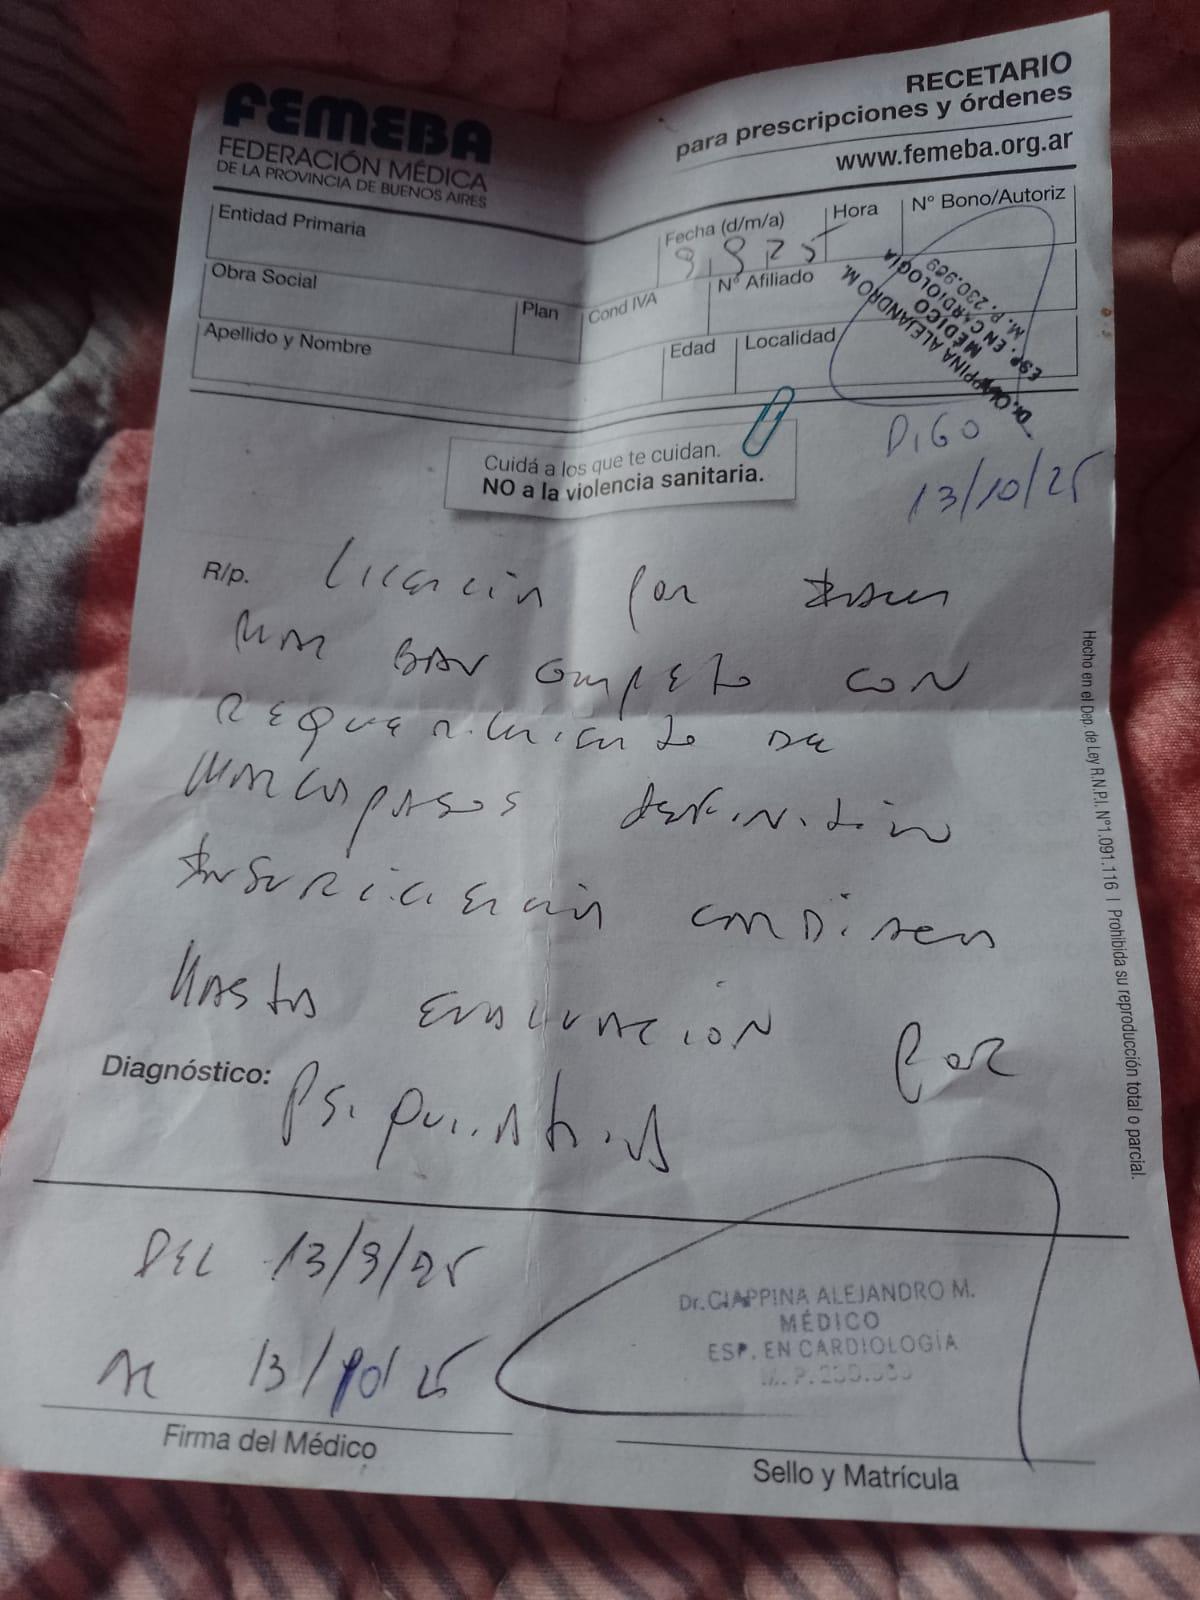 FEMEBA
FEDERACIÓN MÉDICA
DE LA PROVINCIA DE BUENOS AIRES
RECETARIO
para prescripciones y órdenes
www.femeba.org.ar
Entidad Primaria
Fecha (d/m/a)
Hora
N° Bono/Autoriz
Obra Social
Plan
Cond IVA
N° Afiliado
Apellido y Nombre
Edad
Localidad
Dr. CIAPPINA ALEJANDRO M.
MÉDICO
ESP. EN CARDIOLOGÍA
M. P. 230.969
DIGO
13/10/25
Cuidá a los que te cuidan.
NO a la violencia sanitaria.
R/p. licencia por
BAV completo CON
REQUERIMIENTO DE
MARCAPASOS DEFINITIVO
INSUFICIENCIA CARDIACA
HASTA EVALUACION POR
Diagnóstico: PSIQUIATRIA
DEL 13/9/25
AL 13/10/25
Firma del Médico
Dr. CIAPPINA ALEJANDRO M.
MÉDICO
ESP. EN CARDIOLOGÍA
Sello y Matrícula
Hecho en el Dep. de Ley R.N.P.I. N°1.091.116 | Prohibida su reproducción total o parcial.